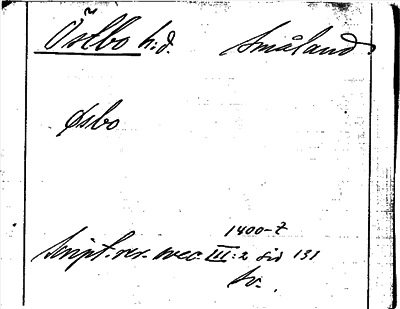 Östbo h:d. Småland
Øsbo
1400-t
Script. rer. svec. III:2 sid 131